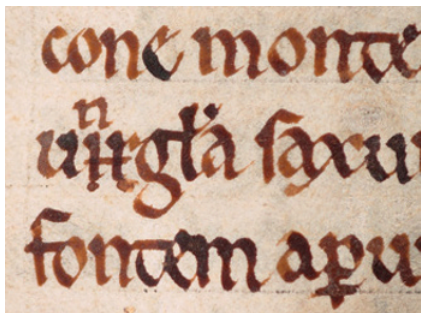 cone monte
ungl'a saxu
fontem aꝑu